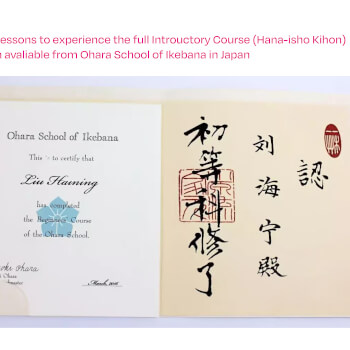 essons to experience the full Introuctory Course (Hana-isho Kihon)
avaliable from Ohara School of Ikebana in Japan
Ohara School of Ikebana
This is to certify that
Liu Haining
has completed
the Beginners' Course
of the Ohara School.
認
刘海宁殿
初等科修了